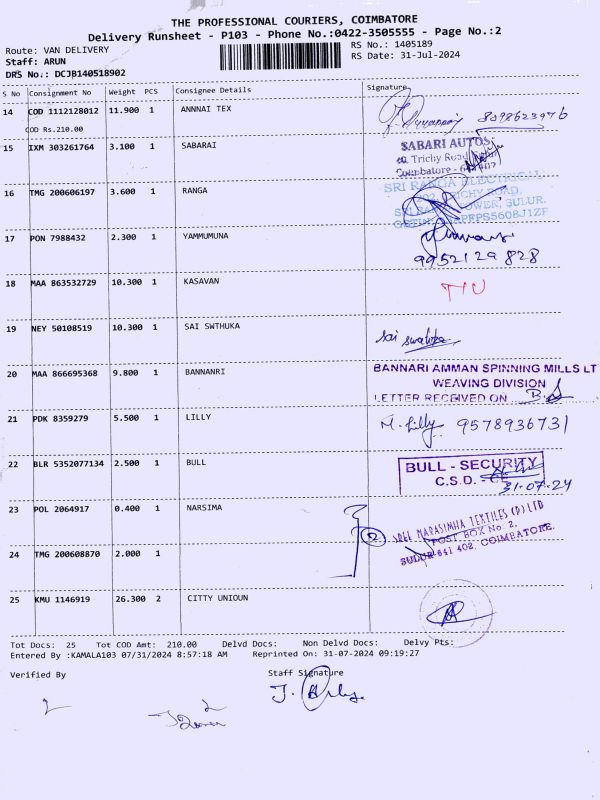 THE PROFESSIONAL COURIERS, COIMBATORE
Delivery Runsheet - P103 - Phone No.:0422-3505555 - Page No.:2
Route: VAN DELIVERY
RS No.: 1405189
Staff: ARUN
RS Date: 31-Jul-2024
DRS No.: DCJB140518902
S No Consignment No Weight PCS Consignee Details Signature
14 COD 1112128012 11.900 1 ANNNAI TEX
COD Rs.210.00
15 IXM 303261764 3.100 1 SABARAI
SABARI AUTOS
Trichy Road
Coimbatore -
16 TMG 200606197 3.600 1 RANGA
SRI RANGA ELECTRICAL
TRICHY ROAD,
TOWER, SULUR.
17 PON 7988432 2.300 1 YAMMUMUNA
9952129828
18 MAA 863532729 10.300 1 KASAVAN
19 NEY 50108519 10.300 1 SAI SWTHUKA
20 MAA 866695368 9.800 1 BANNANRI
BANNARI AMMAN SPINNING MILLS LT
WEAVING DIVISION
LETTER RECEIVED ON
21 PDK 8359279 5.500 1 LILLY
M. Lilly 9578936731
22 BLR 5352077134 2.500 1 BULL
BULL - SECURITY
C.S.D. -
31-07-24
23 POL 2064917 0.400 1 NARSIMA
2
SREE NARASIMHA TEXTILES (P) LTD
POST BOX No. 2,
SULUR-641 402. COIMBATORE.
24 TMG 200608870 2.000 1
25 KMU 1146919 26.300 2 CITTY UNIOUN
Tot Docs: 25 Tot COD Amt: 210.00 Delvd Docs: Non Delvd Docs: Delvy Pts:
Entered By :KAMALA103 07/31/2024 8:57:18 AM Reprinted On: 31-07-2024 09:19:27
Verified By
Staff Signature